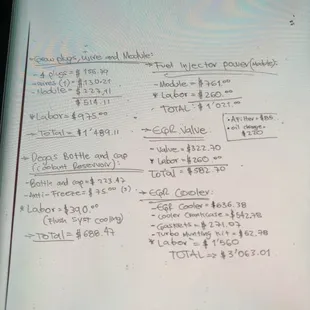 → Glow plugs, wires and Module:
- Module = $223.11
$514.11
* Labor = $975.00
→ TOTAL = $1'489.11
→ Degas Bottle and cap
(coolant Reservoir):
Bottle and cap = $223.47
Anti-Freeze = $75.00 (?)
* Labor = $390.00
(Flush Syst cooling)
→ TOTAL = $688.47
→ Fuel Injector power (Module):
- Module = $761.00
* Labor = $260.00
TOTAL = $1'021.00
→ EGR Valve
- Valve = $322.70
* Labor = $260.00
TOTAL = $582.70
• oil change =
$220
→ EGR Cooler:
- EGR Cooler = $636.78
- Cooler Crankcase = $542.78
- Gaskets = $271.07
- Turbo Mounting Kit = $52.78
* Labor = $1'560
TOTAL ⇒ $3'063.01